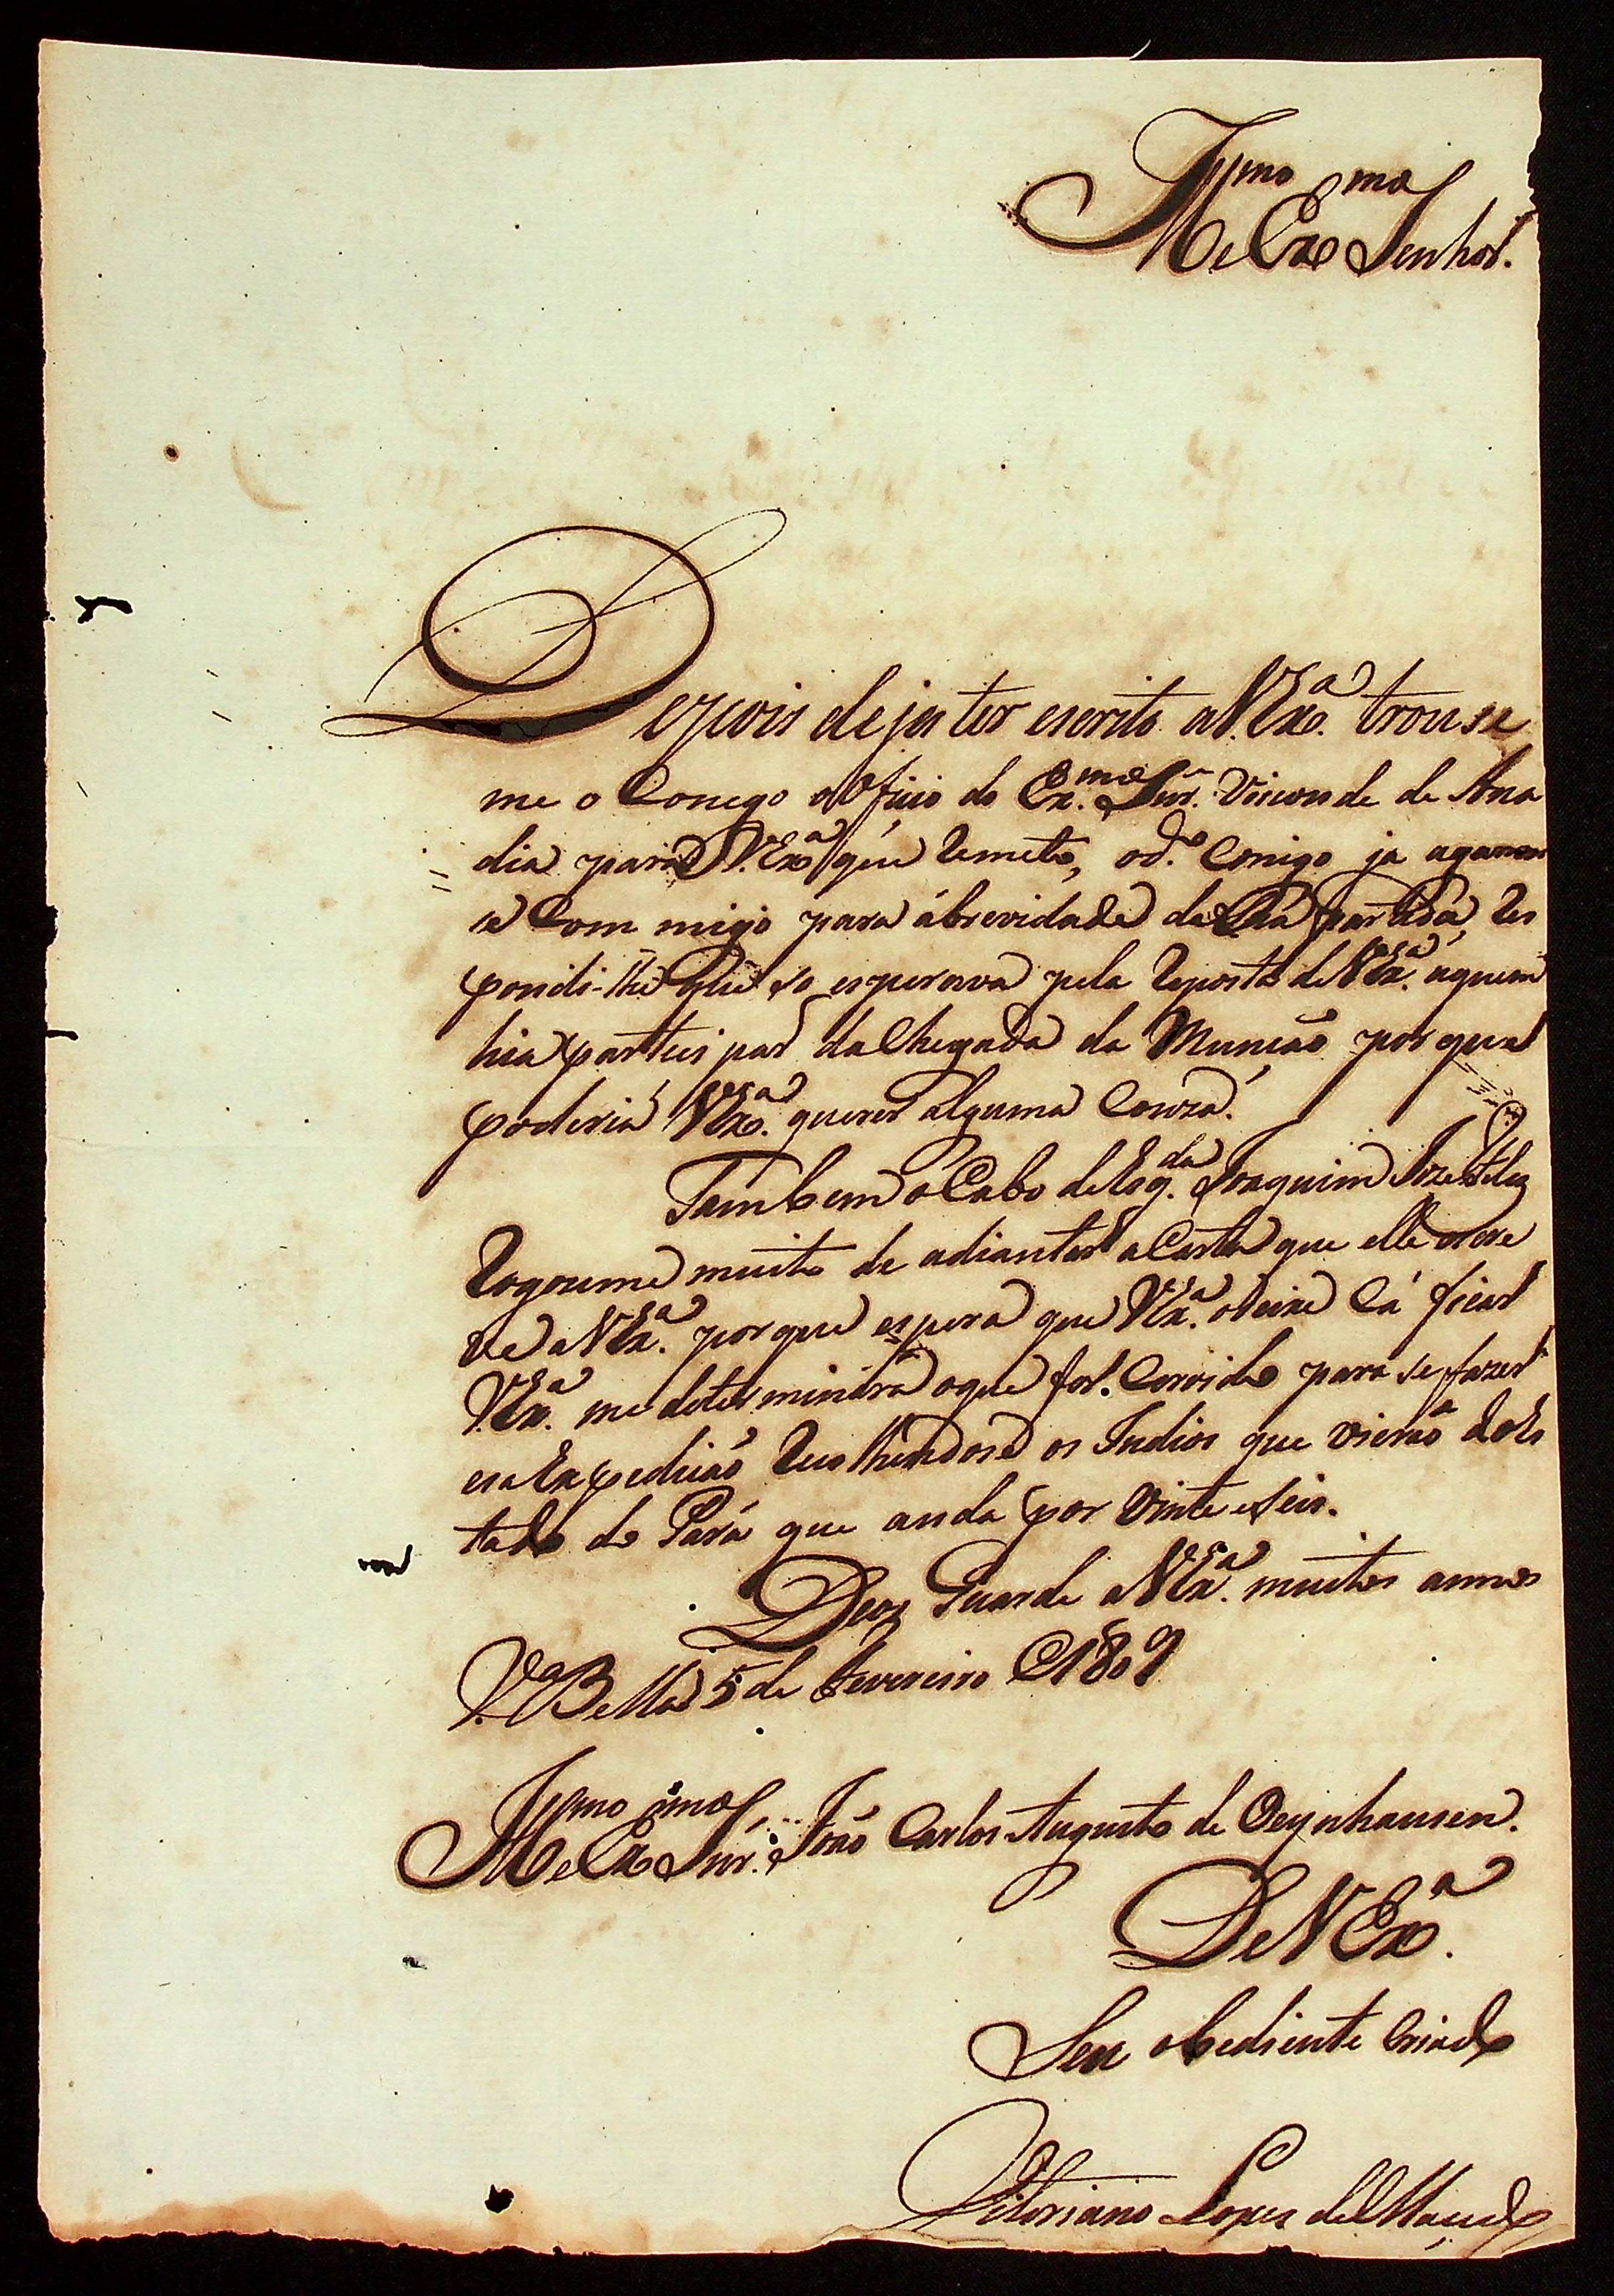 Illmo e Exmo Senhor.
Depois de ja ter escrito a V. Exa. trouse
me o Conego o Oficio do Ex.mo Snr. Visconde de Ana
dia para V. Exa que Remeto, o d.o Conigo ja
se Com migo para abrevidade de Sua partida, Res
pondi-lhe que so esperava pela Reposta de V Exa. aquem
hia partisipar da Chegada da Munisão por qual
poderia V Exa. querer alguma Couza.
Tambem o Cabo de Esq.da Joaquim Joze
Rogoume muito de adiantar a Carta que elle escre
ve a V Exa. porque espera que V Exa. o deixe Lá ficar
V. Exa. me determinára oque for. Servido para se fazer
esa Expedisão Recolhendose os Indios que vierão do Es
tado do Pará que anda por Vinte e seis.
Deos Guarde a V Exa. muitos annos
Va. Bella 5 de Fevereiro 1809
Illmo e Exmo Snr. João Carlos Augusto de Oeynhausen.
De V Exa.
Seu obediente Criado
Vitoriano Lopes de Macedo